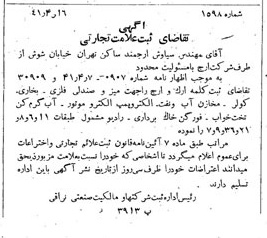 شماره ۱۵۹۸
۴۱ر۴ر۱۶
آگهی
تقاضای ثبت علامت تجارتی
آقای مهندس سیاوش ارجمند ساکن تهران خیابان شوش از
طرف شرکت ارج با مسئولیت محدود
به موجب اظهار نامه شماره ۰۹۰۷-۴۱ر۴ر۷ و ۳۰۹۰۹
تقاضای ثبت کلمه ارك و ارج راجهت میز و صندلی فلزی. بخاری.
کولر. مخازن آب ونفت. الکتروپمپ الکترو موتور. آب گرم کن
تختخواب. فورگن خاك برداری. رادیو مشمول طبقات ۱۱و۶و۸و
۲۱و۳۶و۹و۷ را نموده
مراتب طبق ماده ۷ آئین نامه قانون ثبت علائم تجارتی واختراعات
برای عموم اعلام میگردد تا اشخاصی که خود را نسبت بعلامت مزبور ذیحق
میدانند اعتراضات خود را ظرف سی روز از تاریخ نشر آگهی باین اداره
تسلیم دارند.
رئیس اداره ثبت شرکتها و مالکیت صنعتی نراقی
پ ۳۹۱۳